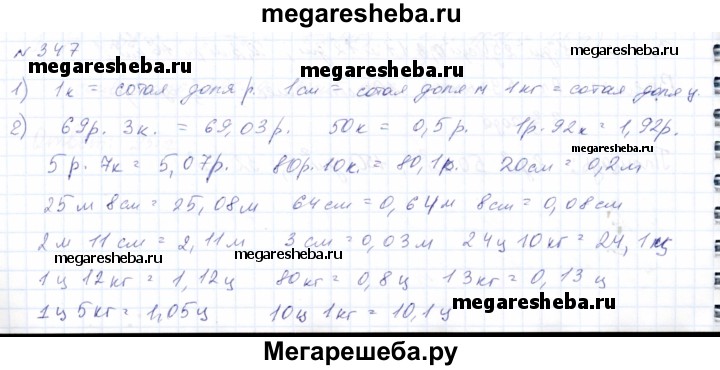 megaresheba.ru
№347
megaresheba.ru megaresheba.ru
1) 1к = сотая доля р. 1см = сотая доля м 1кг = сотая доля ц.
megaresheba.ru megaresheba.ru
2) 69р. 3к. = 69,03р. 50к = 0,5р. 1р. 92к = 1,92р.
5р. 7к = 5,07р. 80р. 10к. = 80,1р. 20см = 0,2м
25м 8см = 25,08м 64см = 0,64м 8см = 0,08см
2м 11см = 2,11м 3см = 0,03м 24ц 10кг = 24,1ц
megaresheba.ru megaresheba.ru
1ц 12кг = 1,12ц 80кг = 0,8ц 13кг = 0,13ц
megaresheba.ru
1ц 5кг = 1,05ц 10ц 1кг = 10,1ц
Мегарешеба.ру